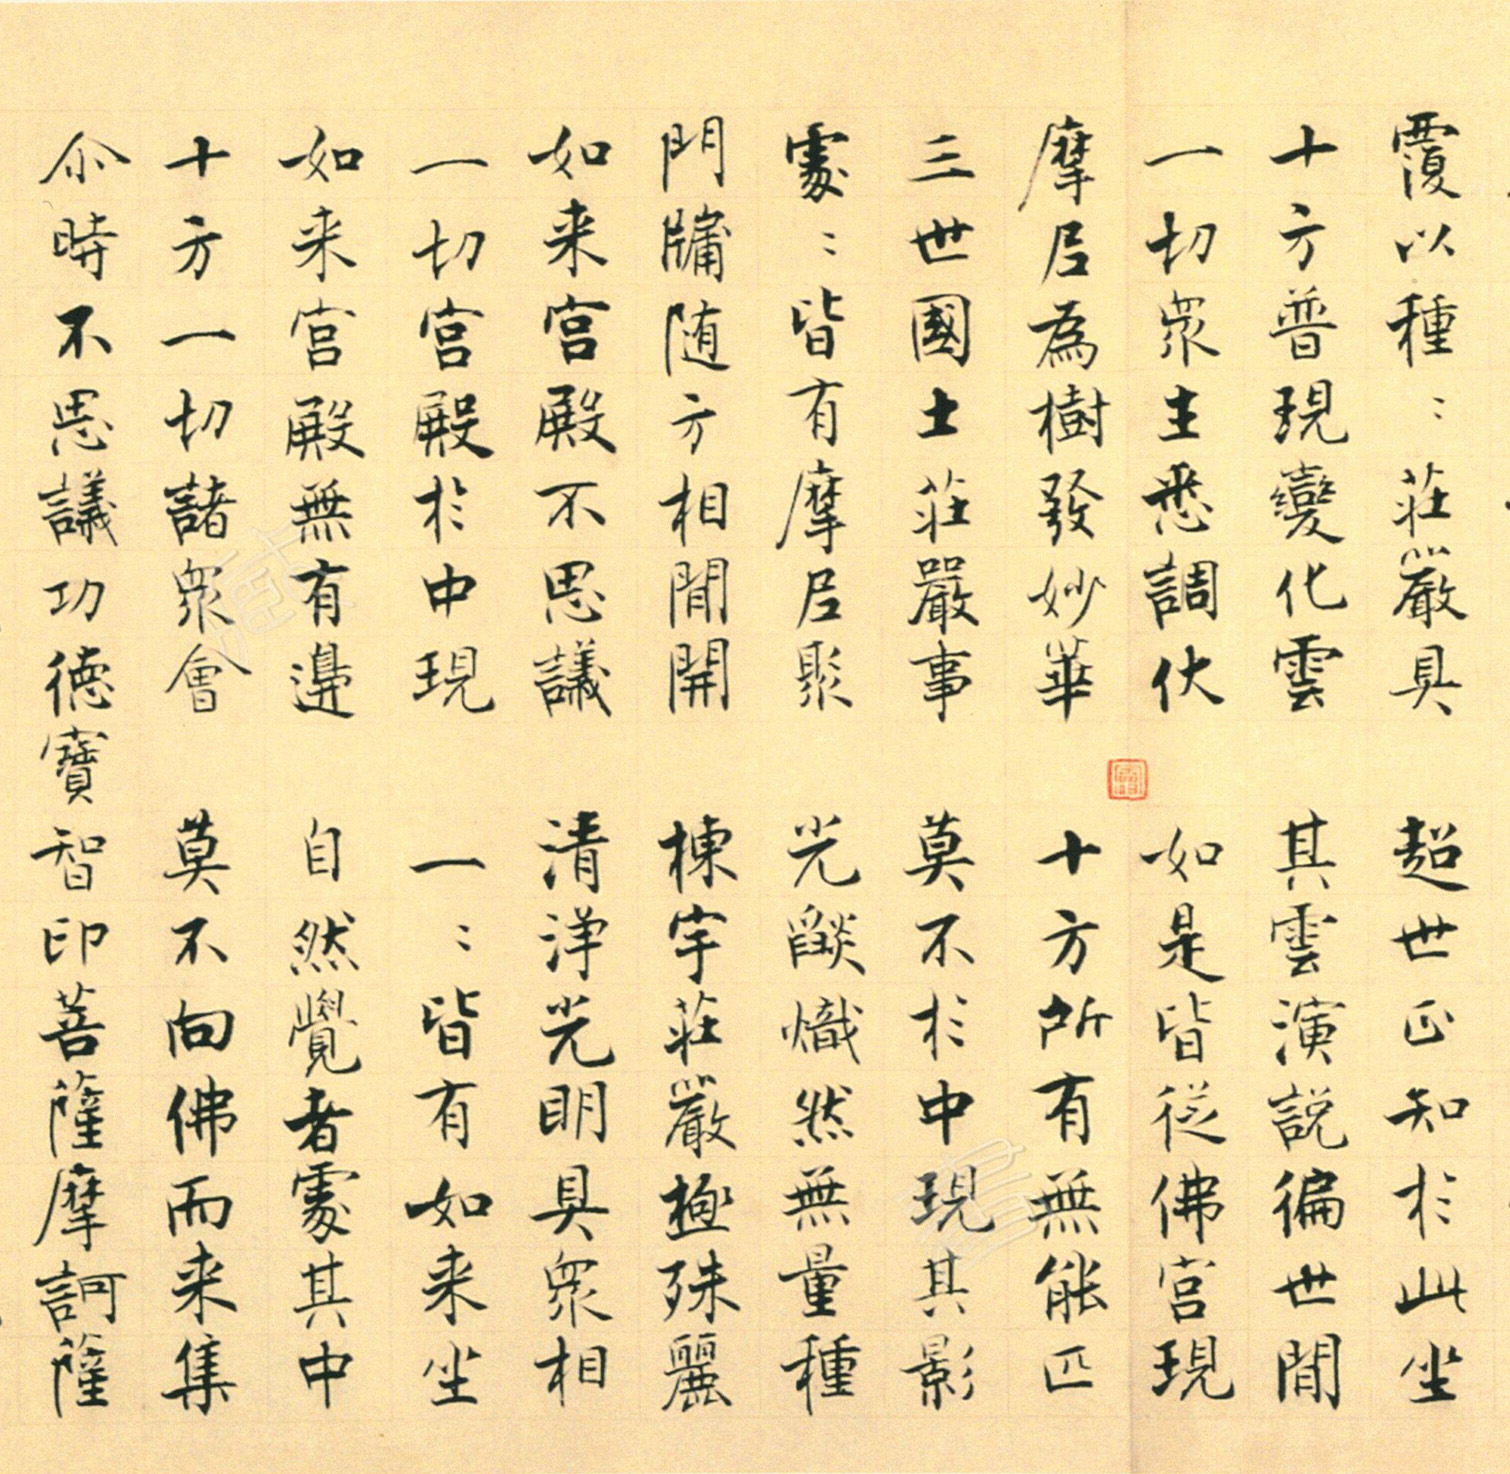 覆以種〻莊嚴具 超世正知於此坐
十方普現變化雲 其雲演說徧世間
一切眾生悉調伏 如是皆從佛宮現
摩尼為樹發妙華 十方所有無能匹
三世國土莊嚴事 莫不於中現其影
處〻皆有摩尼聚 光燄熾然無量種
門牖随方相間開 棟宇莊嚴極殊麗
如来宮殿不思議 清淨光明具眾相
一切宮殿於中現 一〻皆有如来坐
如来宮殿無有邊 自然覺者處其中
十方一切諸眾會 莫不向佛而来集
尒時不思議功德寶智印菩薩摩訶薩